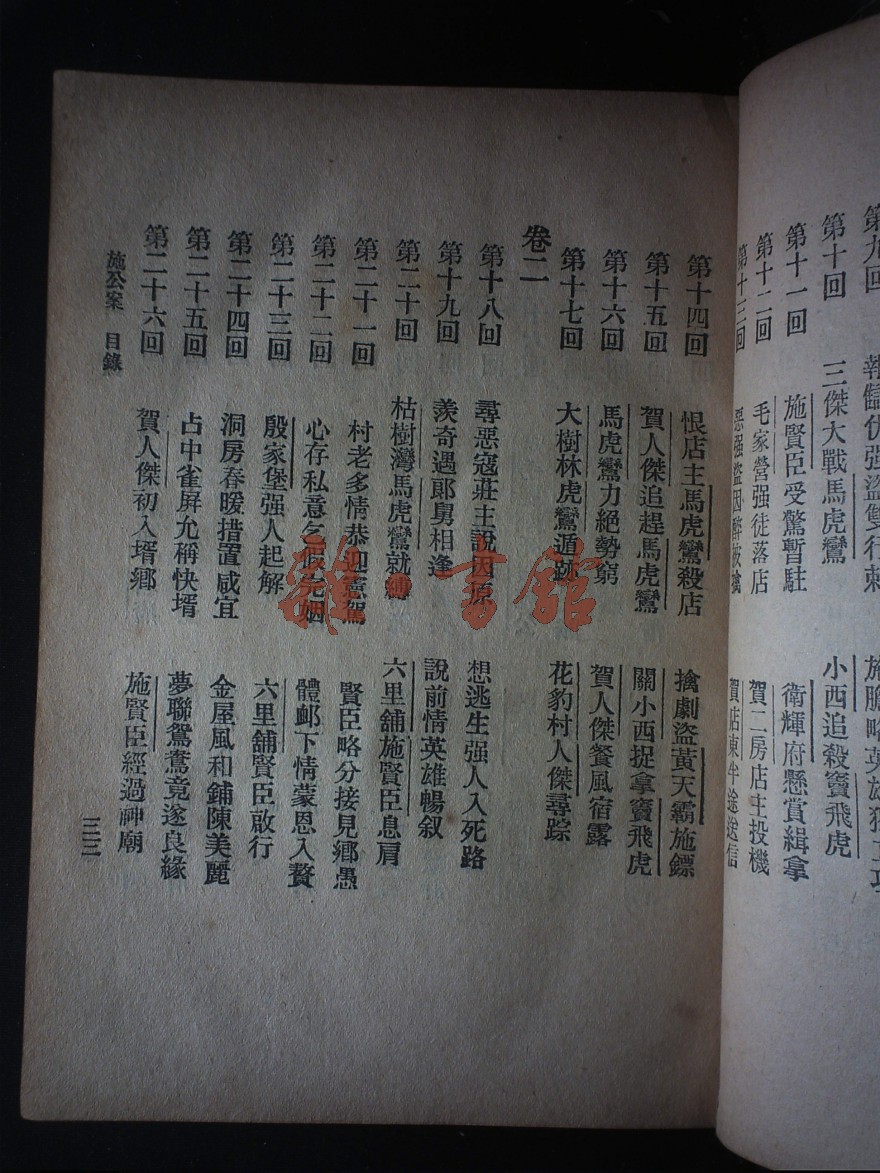 第十回　三傑大戰馬虎鸞　小西追殺竇飛虎
第十一回　施賢臣受驚暫駐　衛輝府懸賞緝拿
第十二回　毛家營强徒落店　賀二房店主投機
第十三回　惡强盜因醉被擒　賀店東半途送信
第十四回　恨店主馬虎鸞殺店　擒劇盜黃天霸施鏢
第十五回　賀人傑追趕馬虎鸞　關小西捉拿竇飛虎
第十六回　馬虎鸞力絕勢窮　賀人傑餐風宿露
第十七回　大樹林虎鸞遁跡　花豹村人傑尋踪
卷二
第十八回　尋惡寇莊主說因原　想逃生强人入死路
第十九回　羨奇遇郎舅相逢　說前情英雄暢叙
第二十回　枯樹灣馬虎鸞就縛　六里舖施賢臣息肩
第二十一回　村老多情恭迎憲駕　賢臣略分接見鄉愚
第二十二回　心存私意乞假完姻　體邮下情蒙恩入贅
第二十三回　殷家堡强人起解　六里舖賢臣啟行
第二十四回　洞房春暖措置咸宜　金屋風和鋪陳美麗
第二十五回　占中雀屏允稱快壻　夢聯鴛鴦竟遂良緣
第二十六回　賀人傑初入壻鄉　施賢臣經過神廟
施公案　目錄　三三
雜·書館